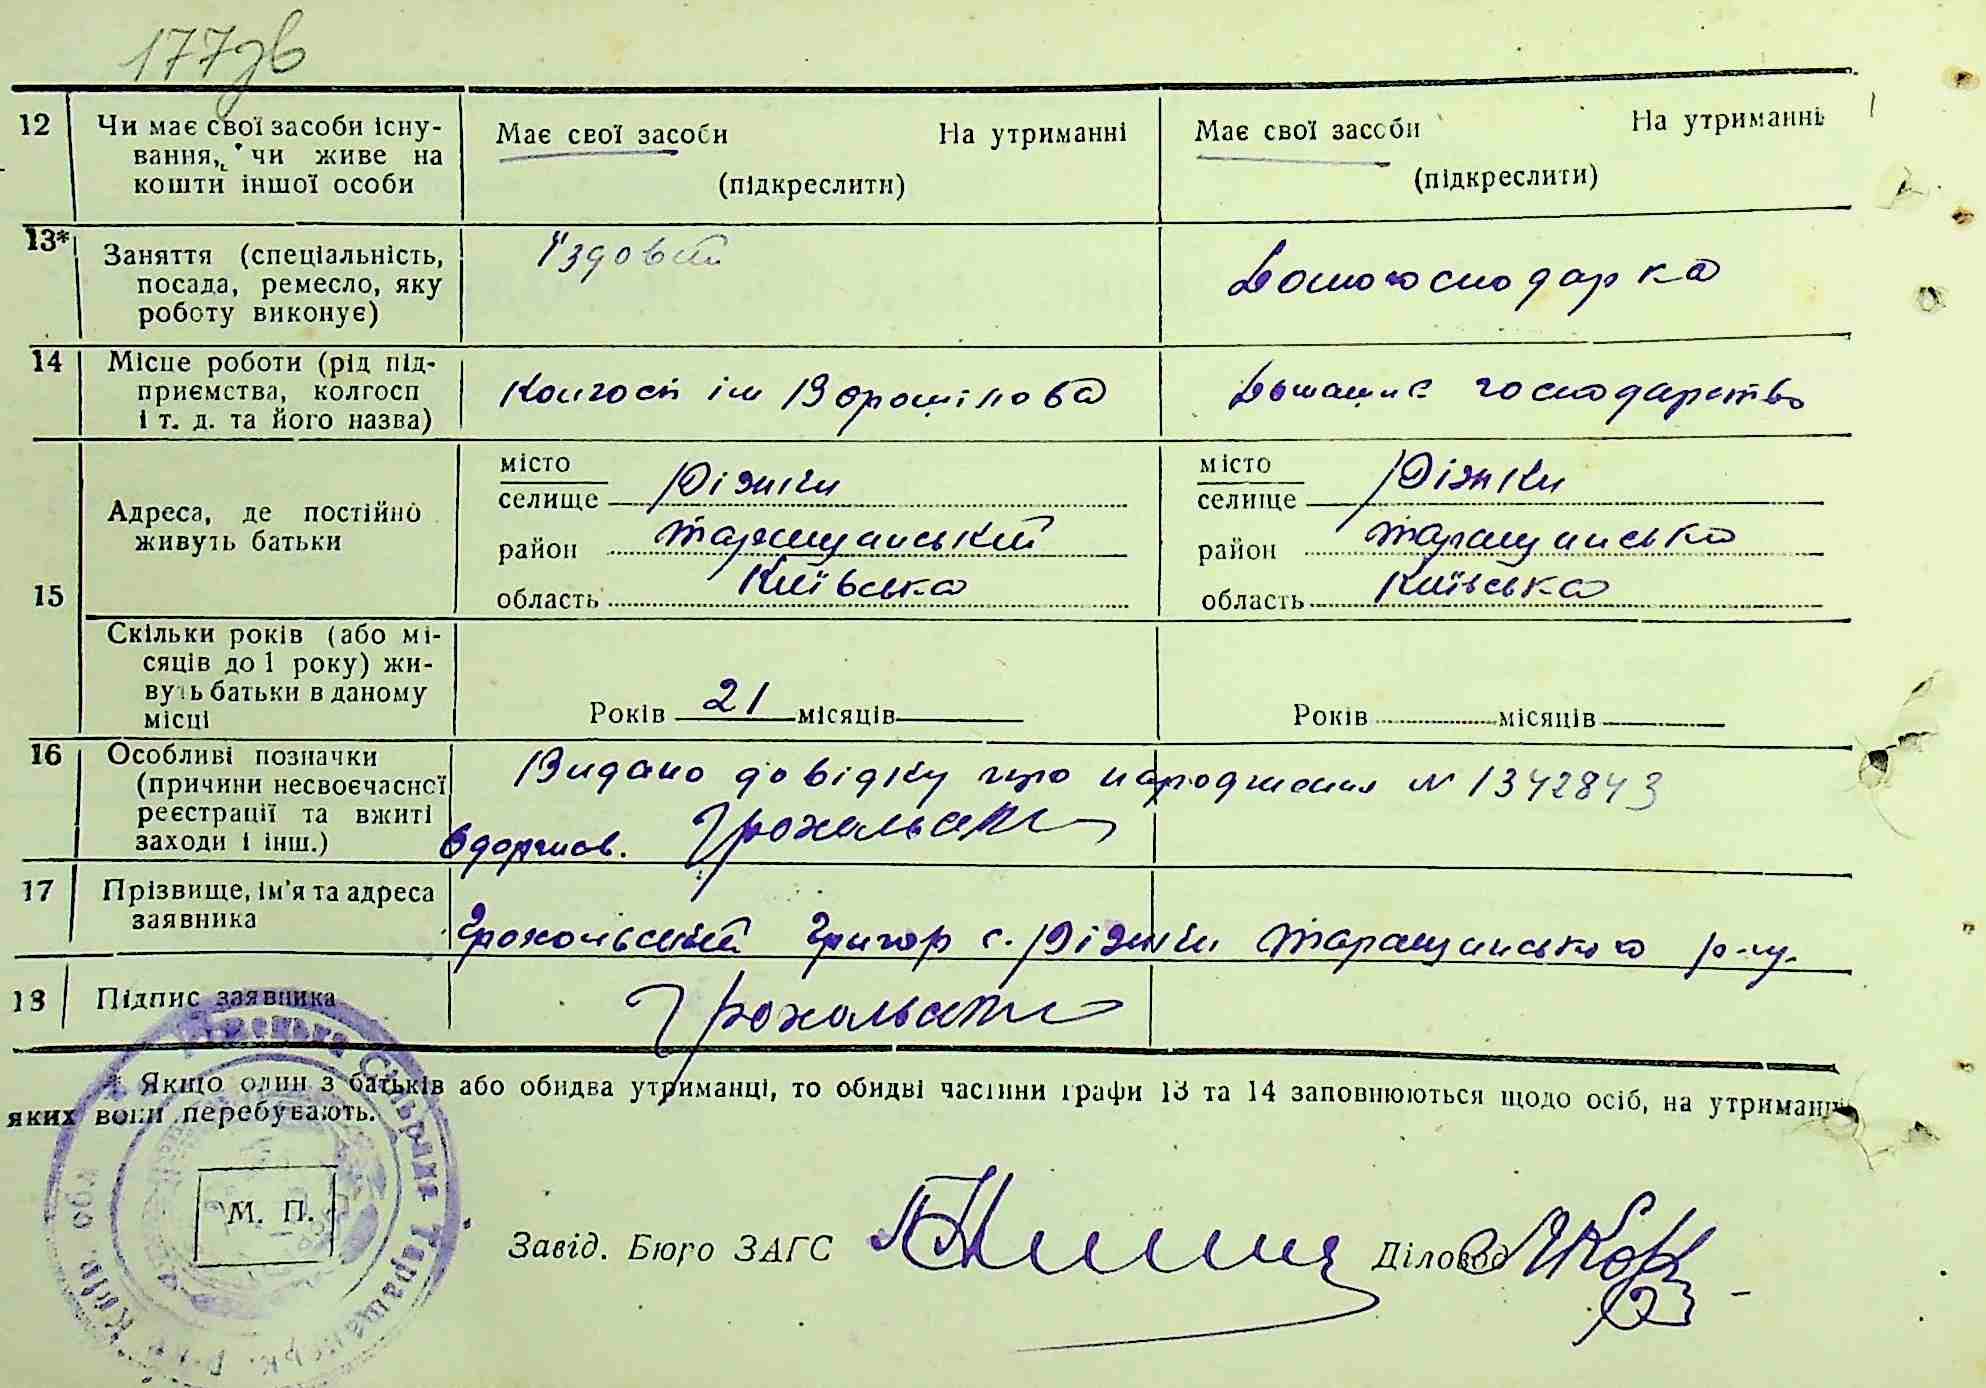 177зв
12 Чи має свої засоби існу-
вання, чи живе на
кошти іншої особи
Має свої засоби На утриманні
(підкреслити)
Має свої засоби На утриманні
(підкреслити)
13* Заняття (спеціальність,
посада, ремесло, яку
роботу виконує)
Їздовий
Домогосподарка
14 Місце роботи (рід під-
приємства, колгосп
і т. д. та його назва)
Колгосп ім Ворошілова
Домашнє господарство
15
Адреса, де постійно
живуть батьки
місто
селище Ріжки
район Таращанський
область Київська
місто
селище Ріжки
район Таращанська
область Київська
Скільки років (або мі-
сяців до 1 року) жи-
вуть батьки в даному
місці
Років 21 місяців
Років місяців
16 Особливі позначки
(причини несвоєчасної
реєстрації та вжиті
заходи і інш.)
Видано довідку про народження № 1342843
Одержав. Грохольський
17 Прізвище, ім'я та адреса
заявника
Грохольський Григор с. Ріжки Таращанського р-ну.
18 Підпис заявника
Грохольський
* Якщо один з батьків або обидва утриманці, то обидві частини графи 13 та 14 заповнюються щодо осіб, на утриманні
яких вони перебувають.
М. П.
Завід. Бюро ЗАГС
Діловод
Ріжківська Сільрада Таращанськ. р-ну Київ. обл